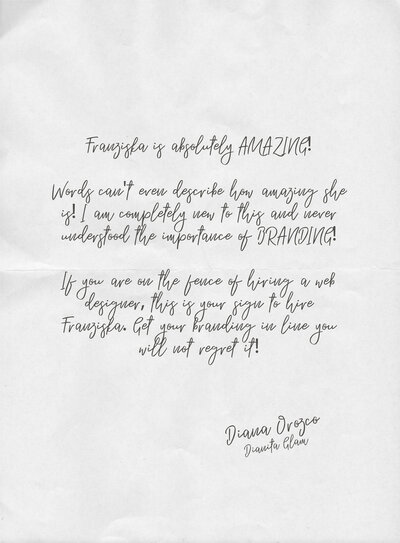 Franziska is absolutely AMAZING!
Words can't even describe how amazing she
is! I am completely new to this and never
understood the importance of BRANDING!
If you are on the fence of hiring a web
designer, this is your sign to hire
Franziska. Get your branding in line you
will not regret it!
Diana Orozco
Dianita Glam